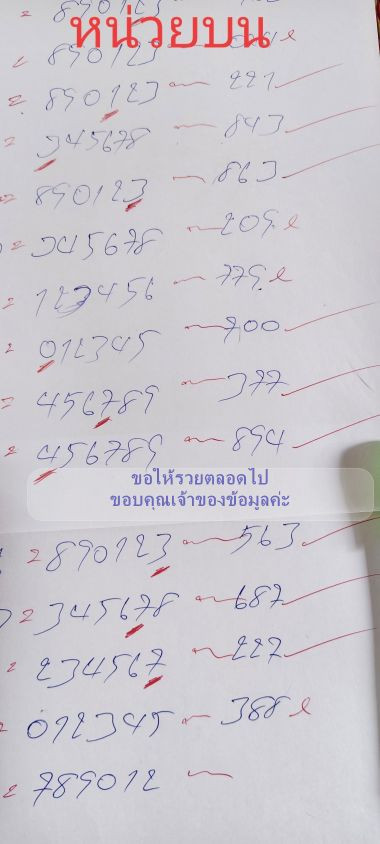 หน่วยบน
= 890123
= 890123
= 890123 ~ 221
= 345678 ~ 843
= 890123 ~ 863
= 345678 ~ 209. l
= 123456 ~ 779. l
= 012345 ~ 700
= 456789 ~ 377
= 456789 ~ 894
ขอให้รวยตลอดไป
ขอบคุณเจ้าของข้อมูลค่ะ
= 890123 ~ 563
= 345678 ~ 687
= 234567 ~ 227
= 012345 ~ 388 l
= 789012 ~